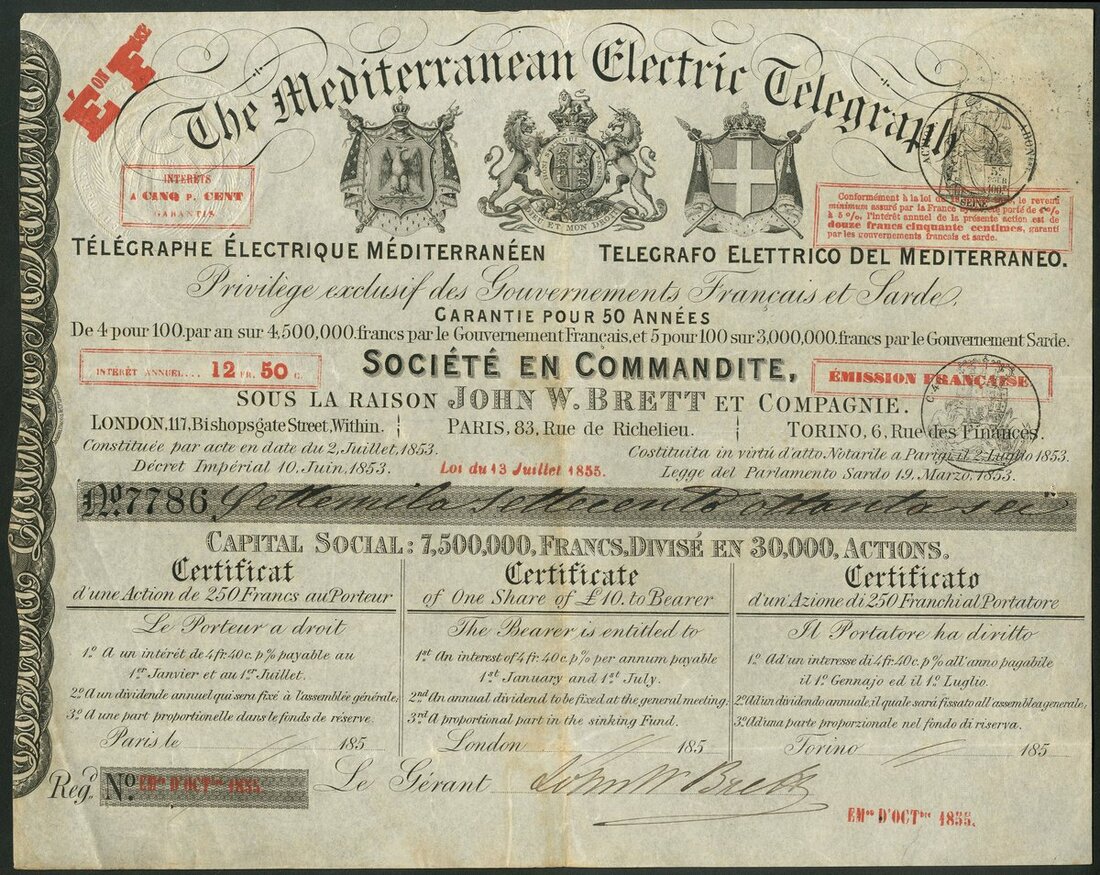 ÉON FSE
The Mediterranean Electric Telegraph
INTERÊTS
A CINQ P. CENT
GARANTIS
HONI SOIT QUI MAL Y PENSE
DIEU ET MON DROIT
Conformément à la loi de, le revenu
minimum assuré par la France porté de 4%
à 5%, l'intérêt annuel de la présente action est de
douze francs cinquante centimes, garanti
par les gouvernements français et sarde.
TÉLÉGRAPHE ÉLECTRIQUE MÉDITERRANÉEN TELEGRAFO ELETTRICO DEL MEDITERRANEO.
Privilège exclusif des Gouvernements Français et Sarde.
GARANTIE POUR 50 ANNÉES
De 4 pour 100. par an sur 4,500,000. francs par le Gouvernement Français, et 5 pour 100 sur 3,000,000. francs par le Gouvernement Sarde.
INTERÊT ANNUEL... 12 FR. 50 C.
SOCIÉTÉ EN COMMANDITE,
ÉMISSION FRANÇAISE
SOUS LA RAISON JOHN W. BRETT ET COMPAGNIE.
LONDON, 117, Bishopsgate Street, Within. PARIS, 83, Rue de Richelieu. TORINO, 6, Rue des Finances.
Constituée par acte en date du 2, Juillet, 1853. Costituita in virtú d'atto Notarile a Parigi il 2 Luglio 1853.
Décret Impérial 10, Juin, 1853. Loi du 13 Juillet 1855. Legge del Parlamento Sardo 19, Marzo, 1853.
No. 7786 Settemila settecento ottanta sei
CAPITAL SOCIAL: 7,500,000, FRANCS, DIVISÉ EN 30,000, ACTIONS.
Certificat
d'une Action de 250 Francs au Porteur
Le Porteur a droit
1º A un intérêt de 4 fr. 40 c. p% payable au
1er Janvier et au 1er Juillet.
2º A un dividende annuel qui sera fixé à l'assemblée générale;
3º A une part proportionelle dans le fonds de réserve.
Paris le 185
Certificate
of One Share of £10. to Bearer
The Bearer is entitled to
1st An interest of 4 fr. 40 c. p% per annum payable
1st January and 1st July.
2nd An annual dividend to be fixed at the general meeting.
3rd A proportional part in the sinking Fund.
London 185
Certificato
d'un'Azione di 250 Franchi al Portatore
Il Portatore ha diritto
1º Ad'un interesse di 4 fr. 40 c. p% all'anno pagabile
il 1º Gennajo ed il 1º Luglio.
2º Ad'un dividendo annuale, il quale sará fissato all'assemblea generale;
3º Ad'una parte proporzionale nel fondo di riserva.
Torino 185
Regd. No. EMon D'OCTbre 1855.
Le Gérant John W Brett
EMon D'OCTbre 1855.